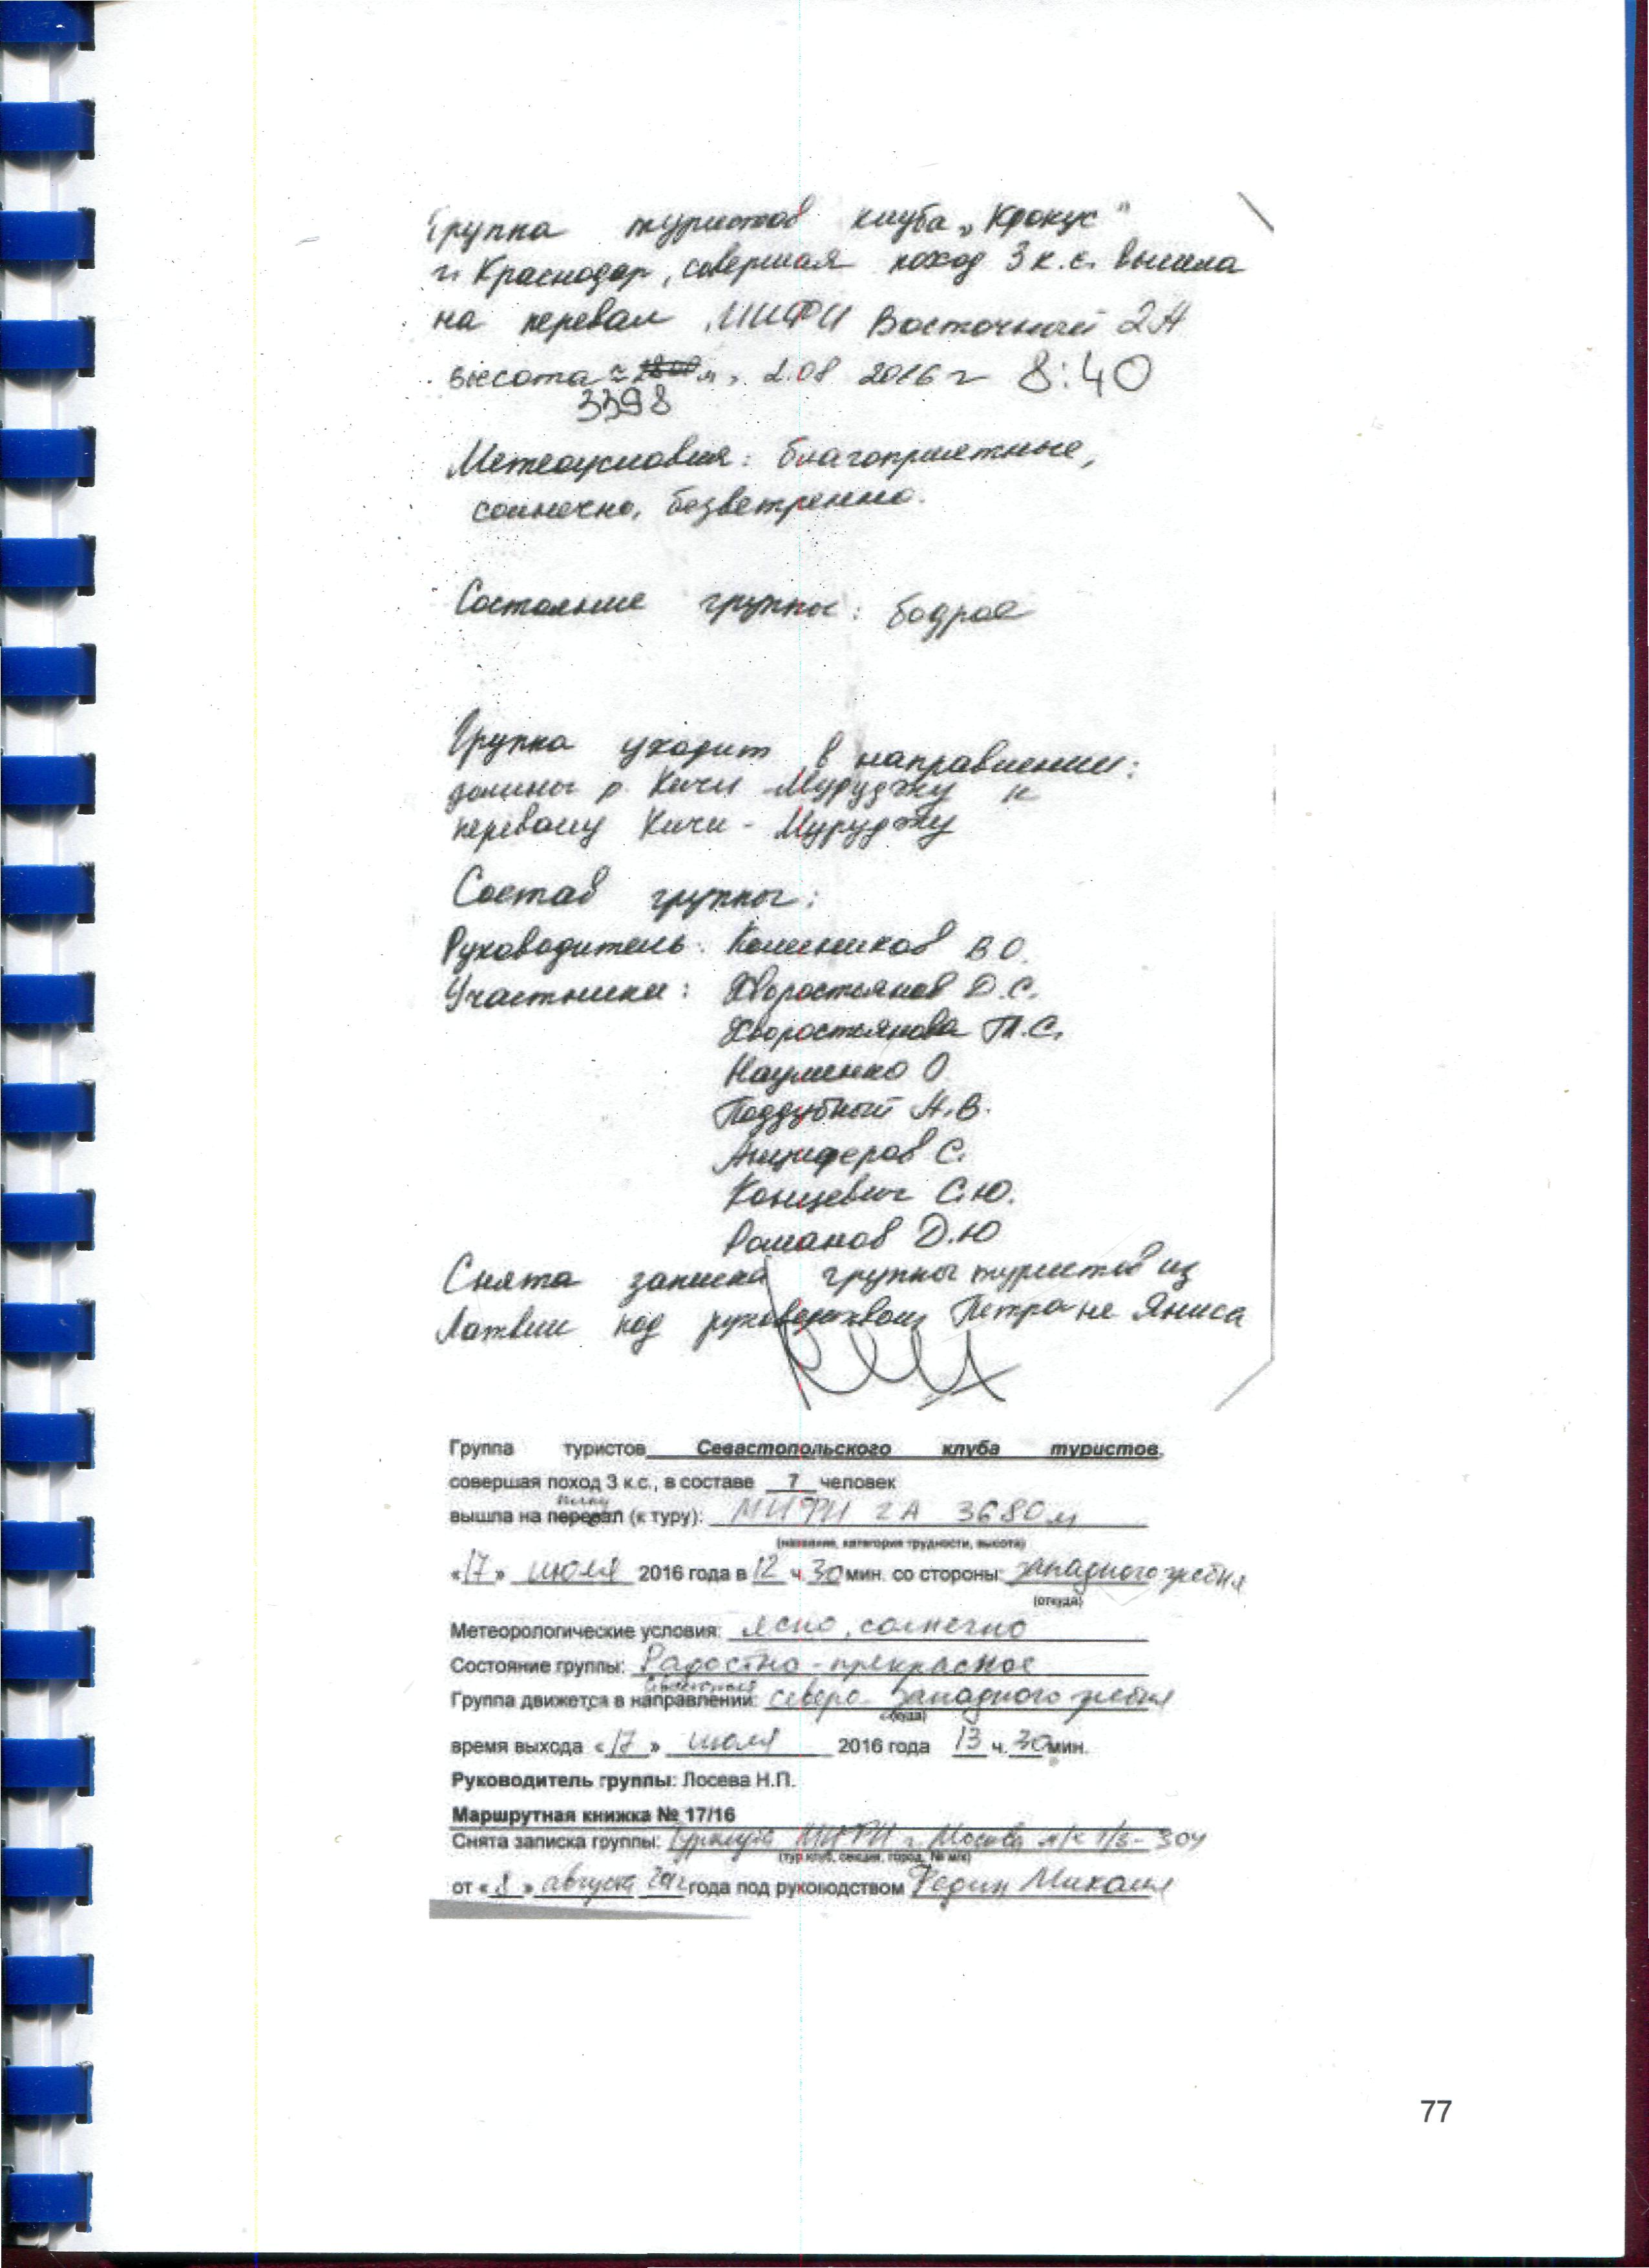 Группа туристов клуба „Крокус"
г. Краснодар, совершая поход 3 к.с. вышла
на перевал МИФИ Восточный 2А
высота ≈ м, 2.08 2016 г 8:40
3398
Метеоусловия: благоприятные,
солнечно, безветренно.
Состояние группы: бодрое
Группа уходит в направлении:
долины р. Кичи Муруджу к
перевалу Кичи-Муруджу
Состав группы:
Руководитель: В О.
Участники: Хворостьянов Д.С.
Хворостьянова Т.С.
Науменко О
Поддубный А.В.
Анциферов С.
Концевич С.Ю.
Романов Д.Ю
Снята записка группы туристов из
Латвии под руководством Петра не Яниса
Группа туристов Севастопольского клуба туристов,
совершая поход 3 к.с., в составе 7 человек
пику
вышла на перевал (к туру): МИФИ 2А 3680м
(название, категория трудности, высота)
«17» июля 2016 года в 12 ч. 30 мин. со стороны: западного гребня
(откуда)
Метеорологические условия: ясно, солнечно
Состояние группы: Радостно-прекрасное
Группа движется в направлении: северо-западного гребня
(куда)
время выхода «17» июля 2016 года 13 ч. 30 мин.
Руководитель группы: Лосева Н.П.
Маршрутная книжка № 17/16
Снята записка группы: Турклуба МИФИ г. Москва м/к 1/3-304
(тур.клуб, секция, город, № м/к)
от «8» августа года под руководством Федин Михаил
77